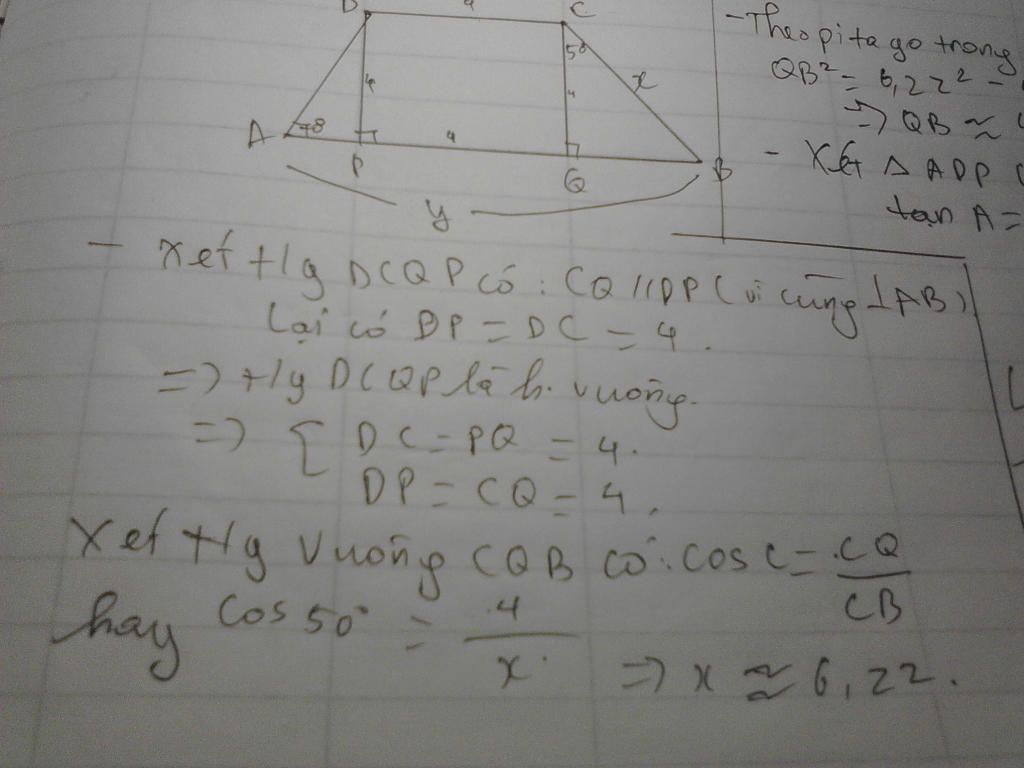 D 4 C
4
50
4
x
A 70
P 4 Q B
y
- Theo pitago trong
QB² = 6,22² -
=> QB ≈
- Xét Δ ADP
tan A =
- Xét t/g DCQP có: CQ // DP (vì cùng ⊥ AB)
Lại có DP = DC = 4.
=> t/g DCQP là h. vuông.
=> { DC = PQ = 4.
DP = CQ = 4.
Xét t/g vuông CQB có: cos C = CQ/CB
hay cos 50° = 4/x => x ≈ 6,22.